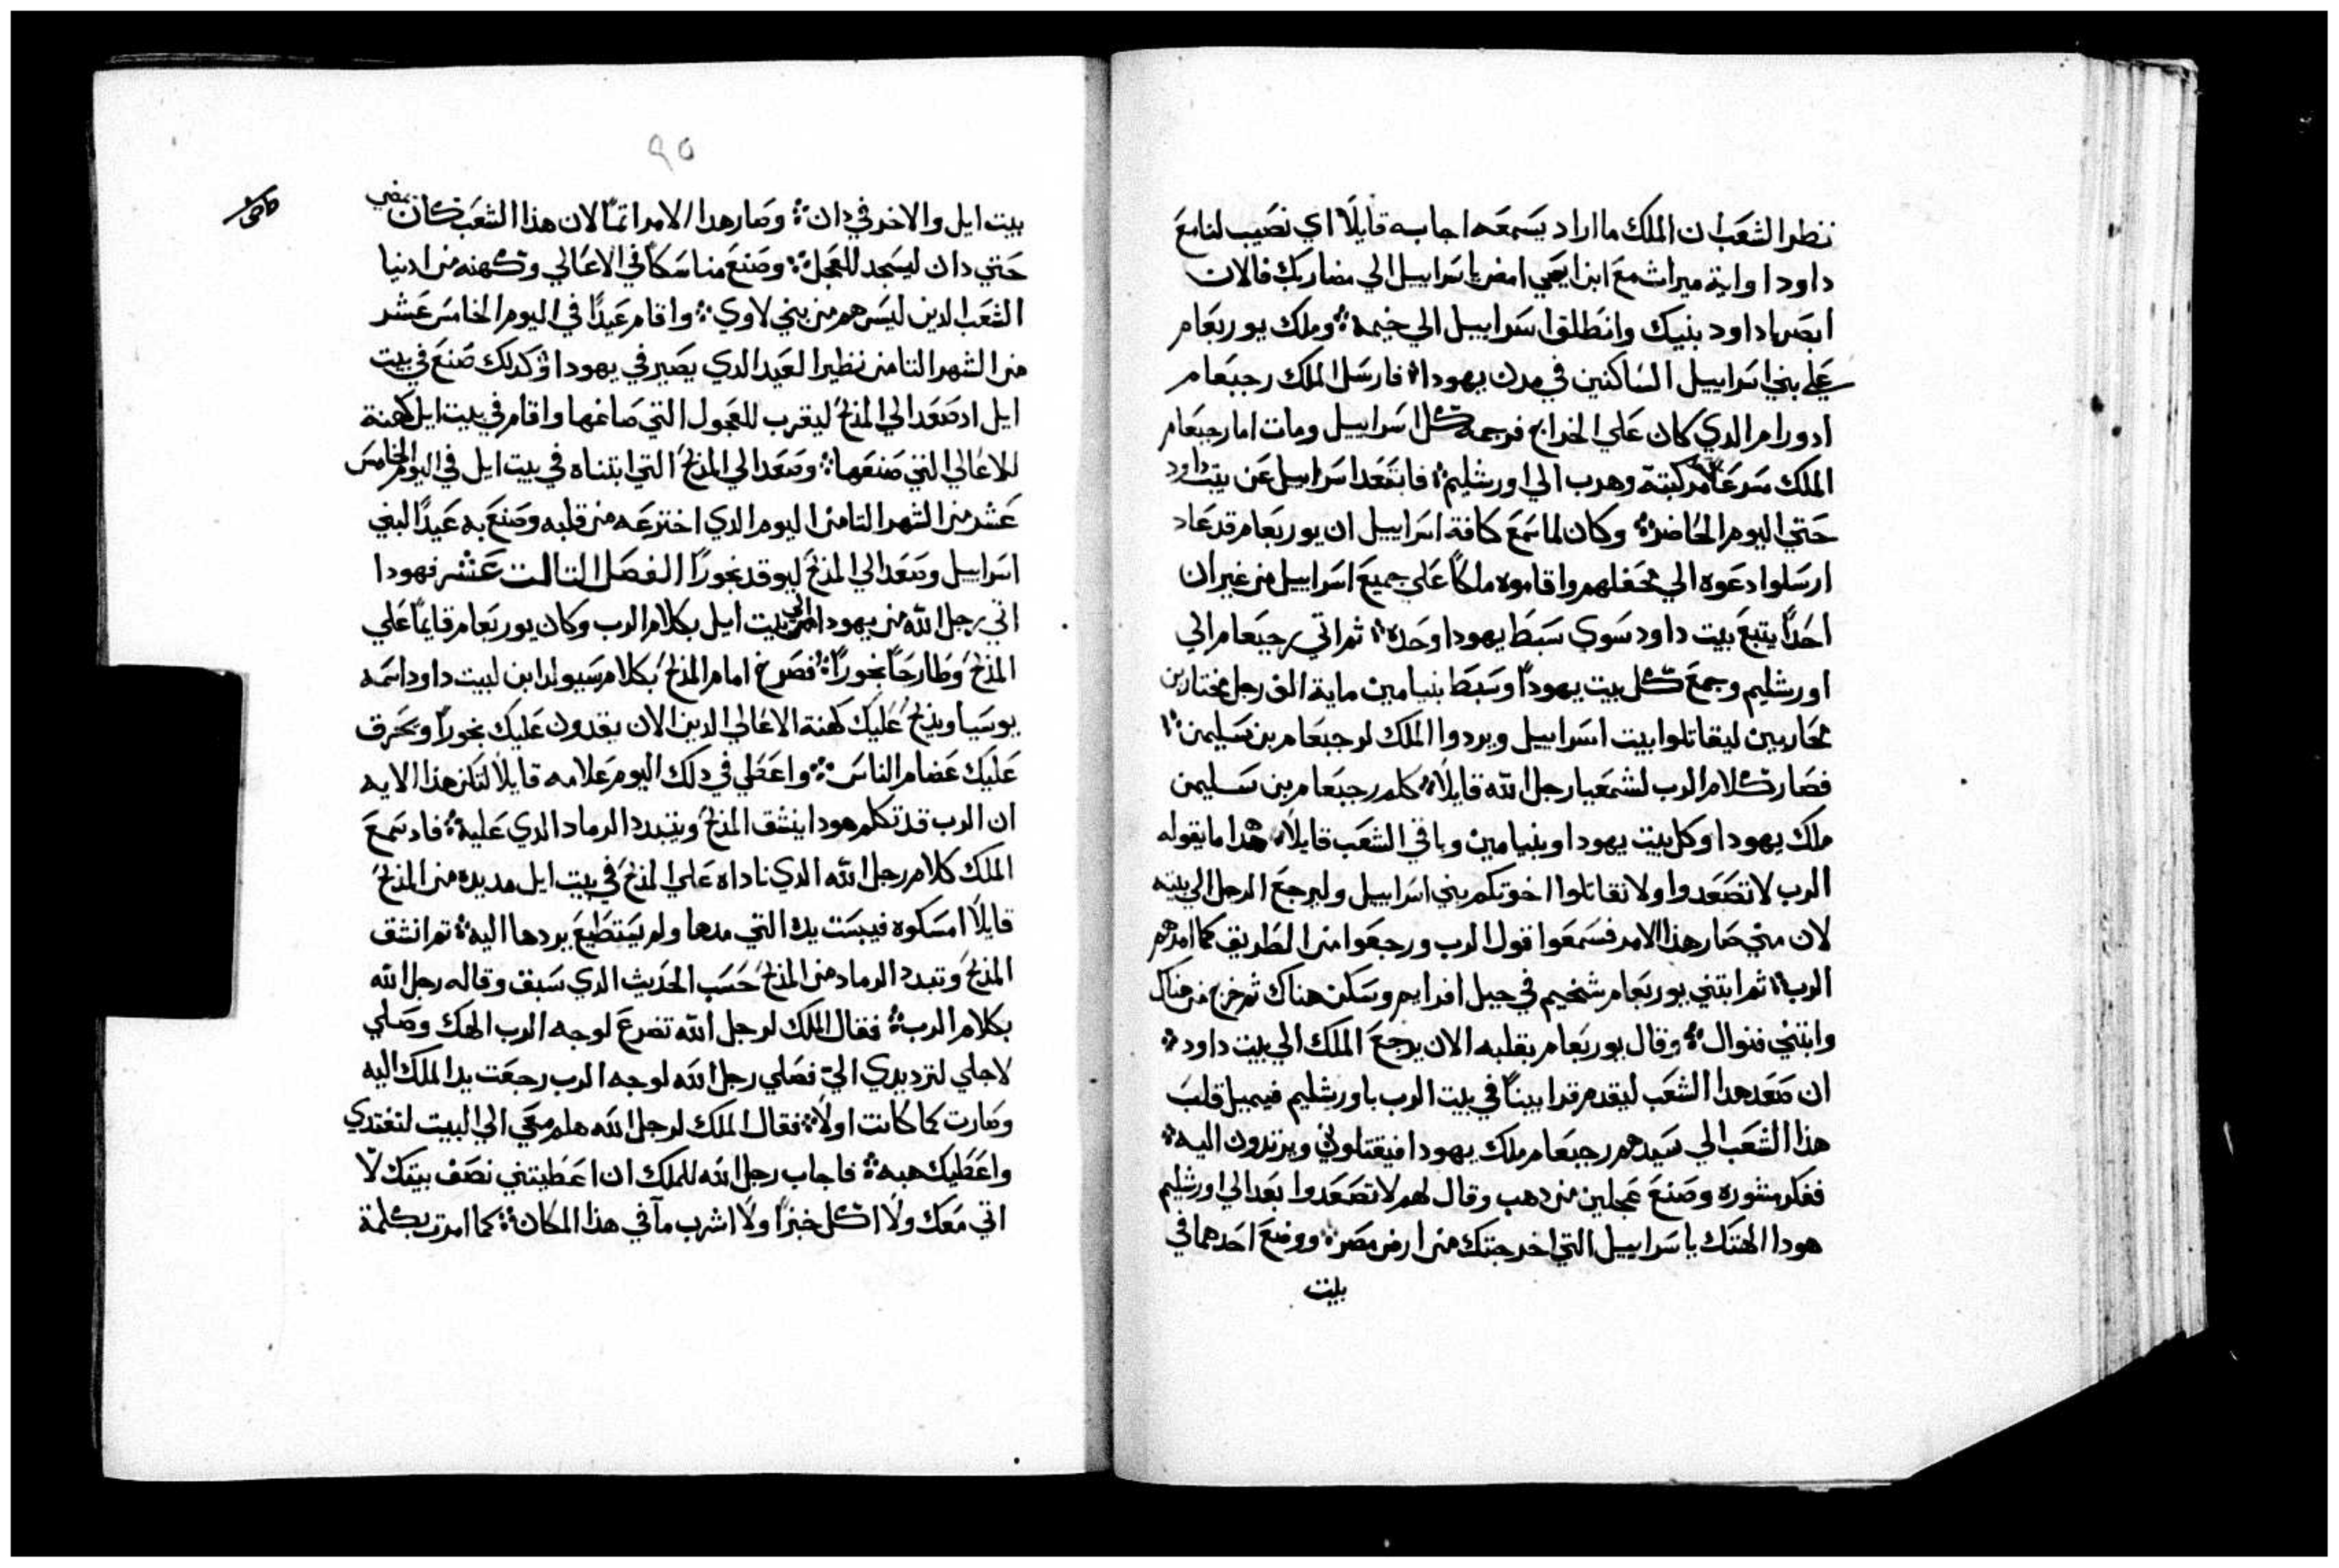 نظر الشعب ان الملك ما اراد يسمعه اجابه قايلا اي نصيب لنا مع
داود او اية ميراث مع ابن ايسي امض يا سراييل الي مضاربك فالان
ابصر يا داود بنيك وانطلقوا سراييل الي خيمه ܀ وملك يوربعام
علي بني اسراييل الساكنين في مدن يهودا ܀ فارسل الملك رجبعام
ادورام الدي كان علي الخراج فرجمه كل اسراييل ومات اما رجبعام
الملك سرعا مركبته وهرب الي اورشليم ܀ فابتعد اسراييل عن بيت داود
حتي اليوم الحاضر ܀ وكان لما سمع كافة اسراييل ان يوربعام قد عاد
ارسلوا دعوه الي محفلهم واقاموه ملكا علي جميع اسراييل من غير ان
احدا يتبع بيت داود سوي سبط يهودا وحده ܀ ثم اتي رجبعام الي
اورشليم وجمع كل بيت يهودا وسبط بنيامين ماية الف رجل مختارين
محاربين ليقاتلوا بيت اسراييل ويردوا الملك لرجبعام بن سليمن ܀
فصار كلام الرب لشمعيا رجل الله قايلا ܀ كلم رجبعام بن سليمن
ملك يهودا وكل بيت يهودا وبنيامين وباقي الشعب قايلا ܀ هدا ما يقوله
الرب لا تصعدوا ولا تقاتلوا اخوتكم بني اسراييل وليرجع الرجل الي بيته
لان مني صار هذا الامر فسمعوا قول الرب ورجعوا من الطريق كما امرهم
الرب ܀ ثم ابتني يوربعام شخيم في جبل افرايم وسكن هناك ثم خرج من هناك
وابتني فنوال ܀ وقال يوربعام بقلبه الان يرجع الملك الي بيت داود ܀
ان صعد هدا الشعب ليقدم قرابينا في بيت الرب باورشليم فيميل قلب
هذا الشعب الي سيدهم رجبعام ملك يهودا فيقتلوني ويرتدون اليه ܀
ففكر مشوره وصنع عجلين من دهب وقال لهم لا تصعدوا بعد الي اورشليم
هودا الهتك يا سراييل التي اخرجتك من ارض مصر ܀ ووضع احدهما في
بيت
٩٥
بيت ايل والاخر في دان ܀ وصار هدا الامر اتما لان هذا الشعب كان يمضي
حتي دان ليسجد للعجل ܀ وصنع مناسكا في الاعالي وكهنه من ادنيا
الشعب الدين ليس هم من بني لاوي ܀ واقام عيدا في اليوم الخامس عشر
من الشهر التامن نظير العيد الدي يصير في يهودا وكدلك صنع في بيت
ايل اد صعد الي المذبح ليقرب للعجول التي صاغها واقام في بيت ايل كهنة
للاعالي التي صنعها ܀ وصعد الي المذبح التي ابتناه في بيت ايل في اليوم الخامس
عشر من الشهر التامن اليوم الدي اخترعه من قلبه وصنع به عيدا لبني
اسراييل وصعد الي المذبح ليوقد بخورا الفصل التالت عشر فهودا
اتي رجل الله من يهودا الي بيت ايل بكلام الرب وكان يوربعام قايما علي
المذبح وطارحا بخورا ܀ فصرخ امام المذبح بكلام سيولد ابن لبيت داود اسمه
يوسيا ويذبح عليك كهنة الاعالي الدين الان يقدون عليك بخورا ويحرق
عليك عضام الناس ܀ واعطي في دلك اليوم علامه قايلا لتكن هذا الايه
ان الرب قد تكلم هودا ينشق المذبح ويتبدد الرماد الدي عليه ܀ فاد سمع
الملك كلام رجل الله الدي ناداه علي المذبح في بيت ايل مد يده من المذبح
قايلا امسكوه فيبست يده التي مدها ولم يستطيع يردها اليه ܀ تم انشق
المذبح وتبدد الرماد من المذبح حسب الحديث الدي سبق وقاله رجل الله
بكلام الرب ܀ فقال الملك لرجل الله تضرع لوجه الرب الهك وصلي
لاجلي لترد يدي الي فصلي رجل الله لوجه الرب رجعت يد الملك اليه
وصارت كما كانت اولا ܀ فقال الملك لرجل الله هلم معي الي البيت لتغتدي
واعطيك هبه ܀ فاجاب رجل الله للملك ان اعطيتني نصف بيتك لا
اتي معك ولا اكل خبزا ولا اشرب مآ في هذا المكان ܀ كما امرت بكلمة